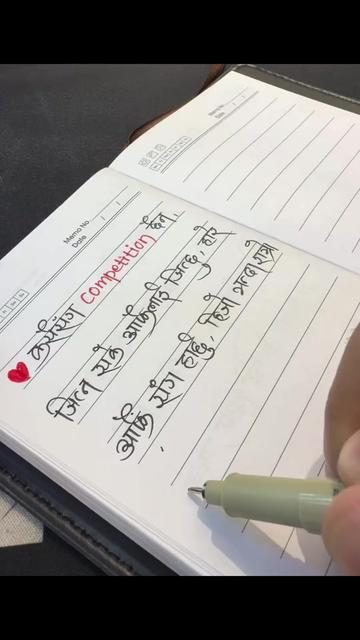 Memo No.
Date / /
Memo No.
Date / /
कसैसंग Competition छैन।
जित्न सकें आफैलाई जित्छु, हारे
आफैं संग हार्छु, हिजो भन्दा राम्रो